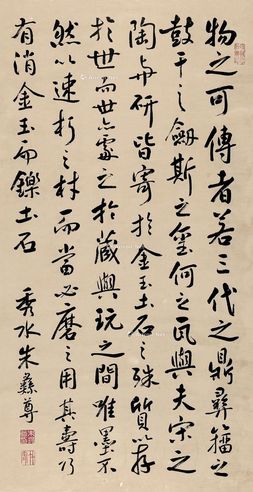 物之可傳者若三代之鼎彝籀之
鼓干之劔斯之璽何之瓦與夫宋之
陶與研皆寄於金玉土石之殊質以存
於世而世亦處之於藏與玩之間唯墨不
然以速朽之材而當必磨之用其壽乃
有消金玉而鑠土石
秀水朱彝尊